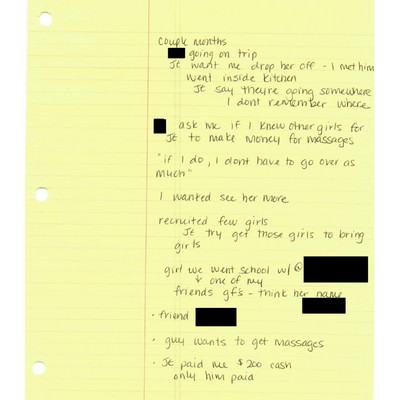 couple months
going on trip
Jt want me drop her off - I met him
went inside kitchen
Jt say they're going somewhere
I dont remember where
ask me if I knew other girls for
Jt to make money for massages
"if I do, I dont have to go over as
much"
I wanted see her more
recruited few girls
Jt try get those girls to bring
girls
girl we went school w/ @
↓ one of my
friends gf's - think her name
· friend
· guy wants to get massages
· Jt paid me $200 cash
only him paid